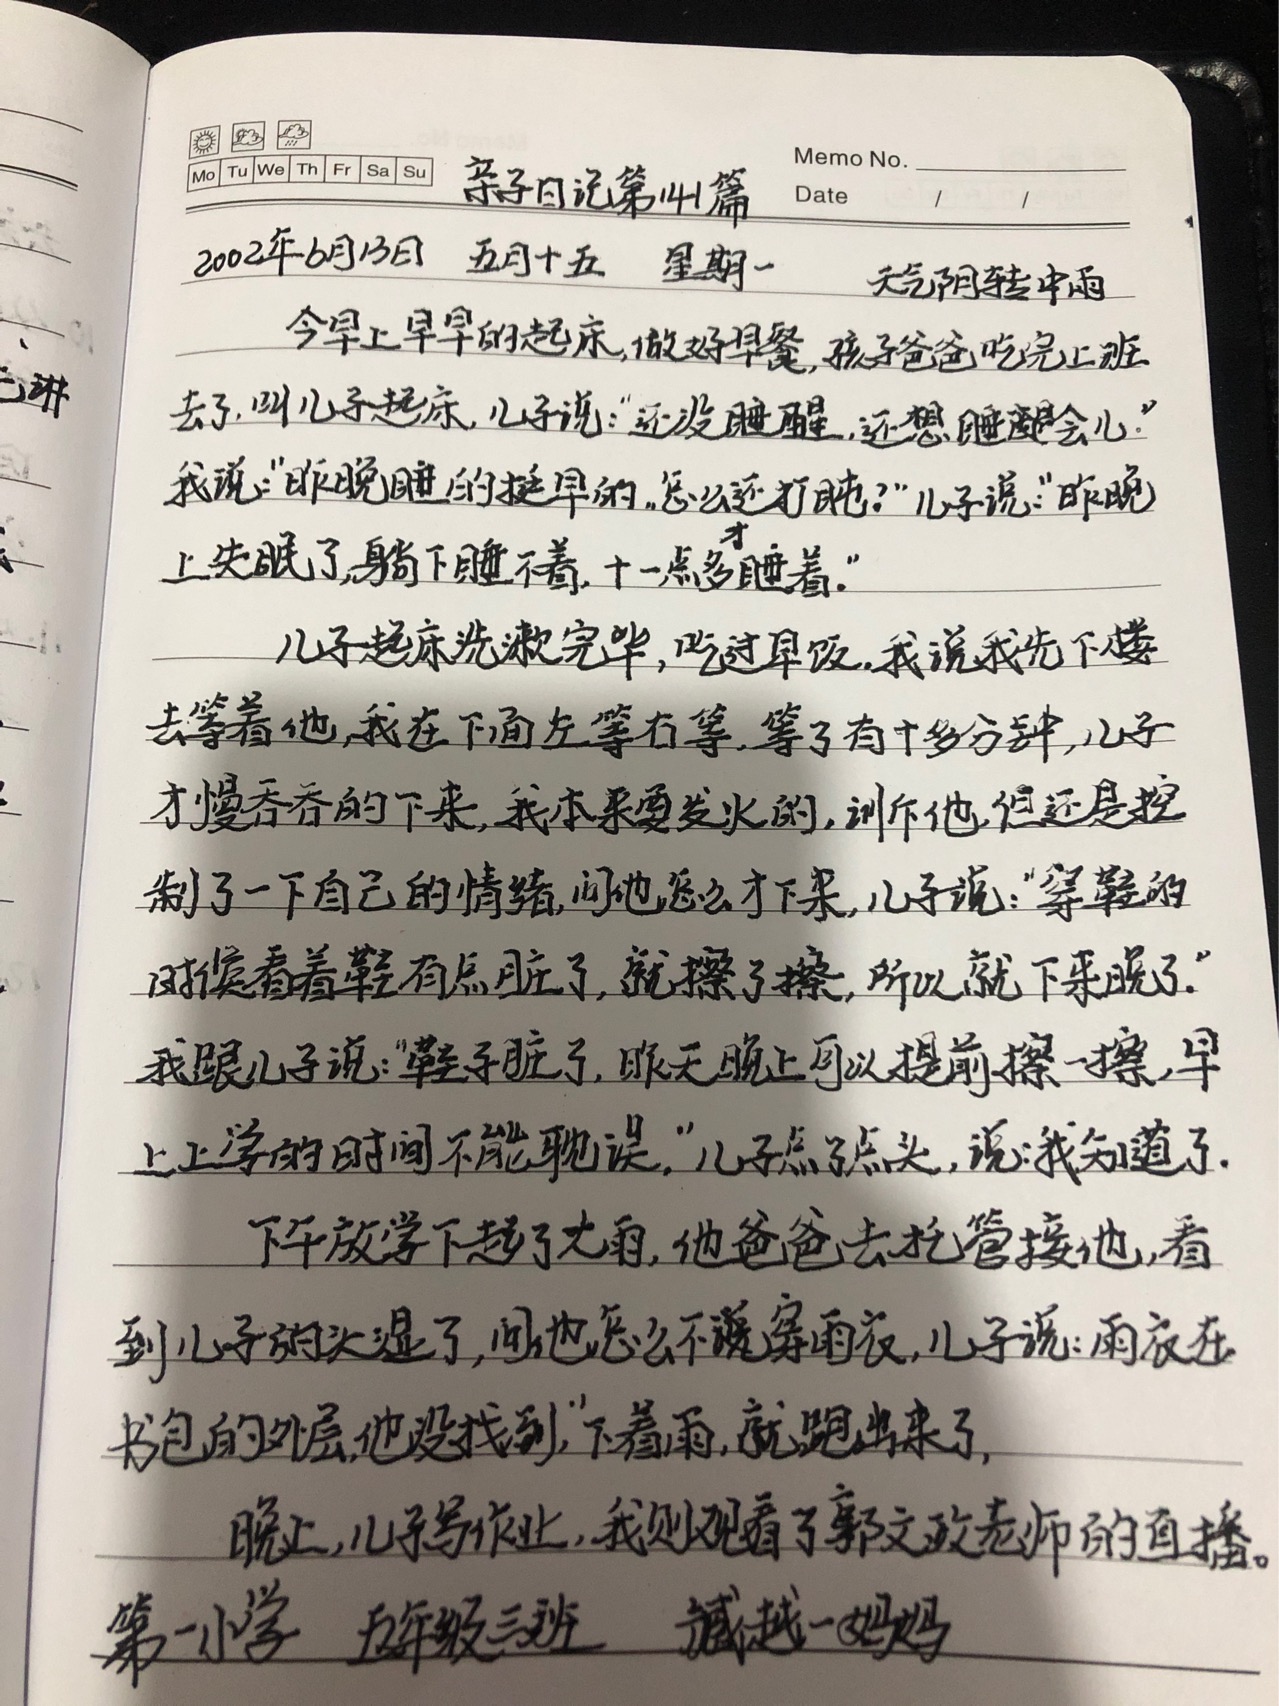 Mo Tu We Th Fr Sa Su
Memo No.
Date / /
亲子日记第141篇
2002年6月13日 五月十五 星期一 天气阴转中雨
今早上早早的起床,做好早餐,孩子爸爸吃完上班
去了,叫儿子起床,儿子说:"还没睡醒,还想睡会儿."
我说:"昨晚睡的挺早的,怎么还打盹?"儿子说:"昨晚
上失眠了,躺下睡不着.十一点多才睡着."
儿子起床洗漱完毕,吃过早饭.我说我先下楼
去等着他,我在下面左等右等.等了有十多分钟,儿子
才慢吞吞的下来,我本来要发火的,训斥他,但还是控
制了一下自己的情绪,问他怎么才下来,儿子说:"穿鞋的
时候看着鞋有点脏了,就擦了擦,所以就下来晚了."
我跟儿子说:"鞋子脏了,昨天晚上可以提前擦一擦,早
上上学的时间不能耽误,"儿子点了点头,说:我知道了.
下午放学下起了大雨,他爸爸去托管接他,看
到儿子的头湿了,问他怎么不说穿雨衣,儿子说:雨衣在
书包的外层,他没找到,"下着雨,就跑出来了,
晚上,儿子写作业,我则观看了郭文政老师的直播。
第一小学 五年级三班 臧越一妈妈